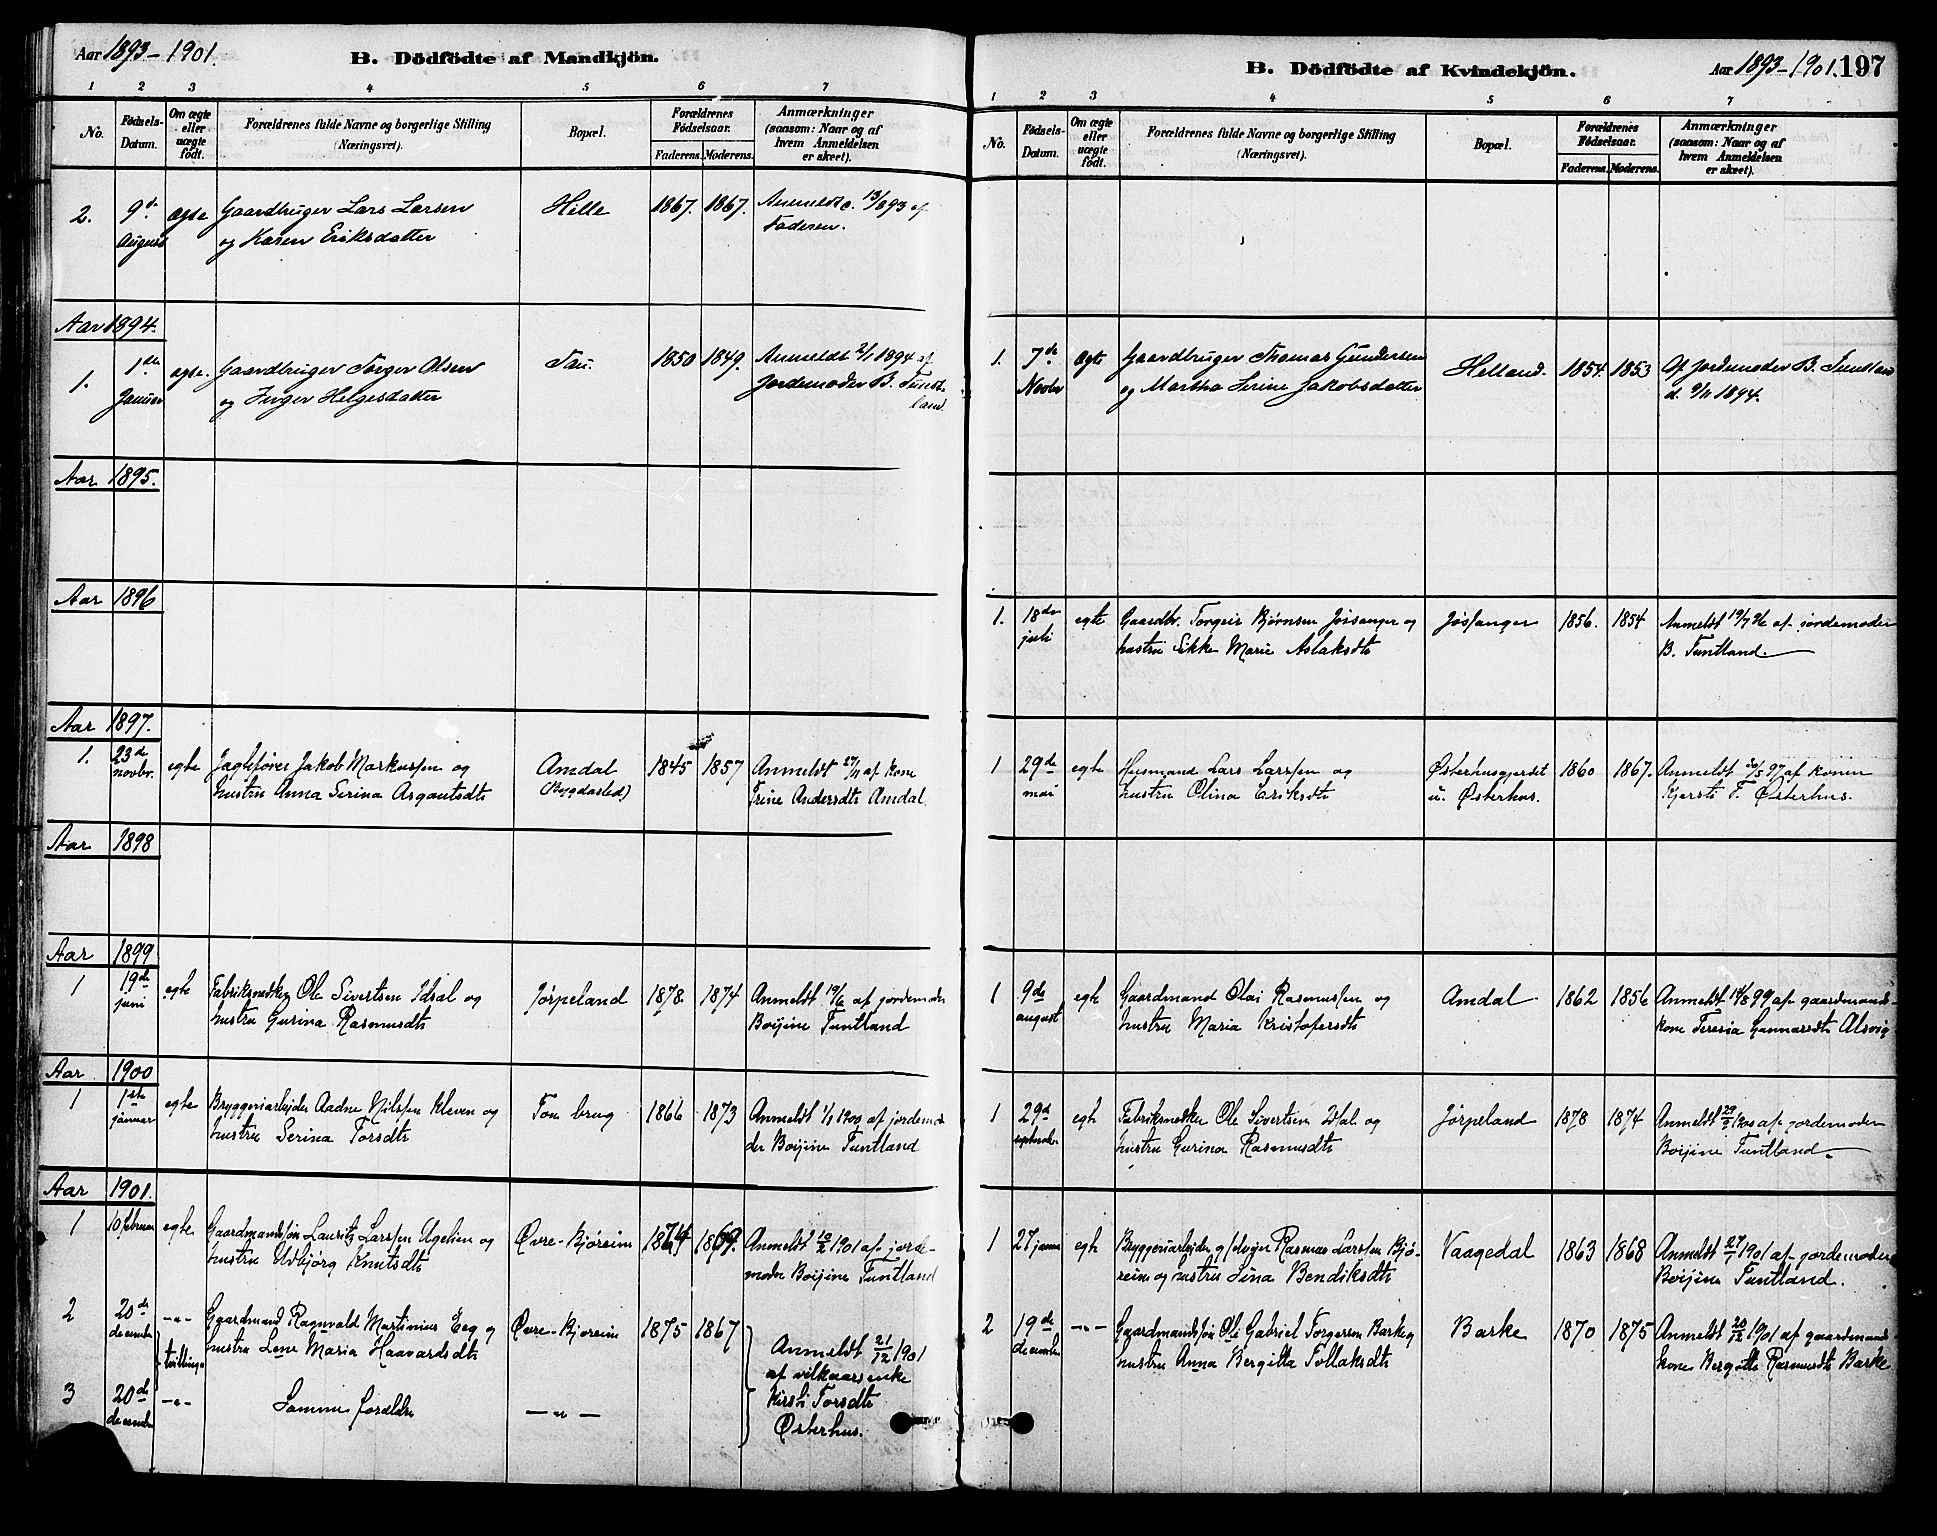 Aar 1893-1901.
B. Dödfödte af Mandkjön.
1 2 3 4 5 6 7
No.
Födsels-
Datum.
Om ægte
eller
uægte
født.
Forældrenes fulde Navne og borgerlige Stilling
(Næringsvei).
Bopæl.
Forældrenes
Födselsaar.
Faderens. Moderens.
Anmærkninger
(saasom: Naar og af
hvem Anmeldelsen
er skeet).
2. 9d. ægte Gaardbruger Lars Larsen Hille 1867. 1867. Anmeldt 13/8 93 af
August og Karen Eriksdatter Faderen.
Aar 1894.
1. 1ste ægte. Gaardbruger Torger Olsen Tau. 1850 1849. Anmeldt 2/1 1894 af
Januar og Inger Helgesdatter Jordemoder B. Tunt-
land.
Aar 1895.
Aar 1896
Aar 1897.
1. 23de egte Jagtefører Jakob Markussen og Amdal 1845 1857 Anmeldt 27/11 af kone
novbr. hustru Anna Serina Asgautsdtr (Bygdasted) Trine Andersdtr Amdal.
Aar 1898
Aar 1899
1 19de egte Ole Sivertsen Idsal og Jørpeland 1878. 1874 Anmeldt 19/6 af jordemoder
juni hustru Gurina Rasmusdtr Boijine Tuntland
Aar 1900
1 1ste egte Bryggeriarbejder Aadne Nilssen Kleven og Tou brug 1866 1873 Anmeldt 1/1 1900 af jordemo-
januar hustru Serina Torsdtr der Boijine Tuntland
Aar 1901.
1 10 februar egte Gaardmandsøn Lauritz Larssen Ugelien og Øvre-Bjøreim 1874 1869. Anmeldt 10/2 1901 af jorde-
hustru Udbjørg Knutsdtr moder Boijine Tuntland
2 20de -"- Gaardmand Ragnvald Martinius Eeg og Øvre-Bjøreim 1875 1867
december hustru Lene Maria Haavardsdtr
tvillinge
Anmeldt 21/12 1901
af vilkaarsenke
Kirsti Torsdtr
Østerhus.
3 20de -"- Samme forældre -"-
december
Aar 1893-1901. 197
B. Dödfödte af Kvindekjön.
1 2 3 4 5 6 7
No.
Födsels-
Datum.
Om ægte
eller
uægte
födt.
Forældrenes fulde Navne og borgerlige Stilling
(Næringsvei).
Bopæl.
Forældrenes
Födselsaar.
Faderens. Moderens.
Anmærkninger
(saasom: Naar og af
hvem Anmeldelsen
er skeet).
1. 7de ægte Gaardbruger Thomas Gundersen Helland. 1854. 1853 Af Jordemoder B. Tuntlan
Novbr og Martha Serine Jakobsdatter d. 9/11 1894.
1. 18de egte Gaardbr. Torgeir Bjørnsen Jøssanger og Jøssanger 1856. 1854 Anmeldt 19/7 96 af jordemoder
juli hustru Sikke Marie Aslaksdtr B. Tuntland.
1 29de egte Husmand Lars Larssen og Østerhusgjerdet 1860 1867. Anmeldt 30/5 97 af konen
mai hustru Olina Eriksdtr u. Østerhus. Kjersti T. Østerhus.
1 9de egte Gaardmand Olai Rasmussen og Amdal 1862 1856 Anmeldt 14/8 99 af gaardmands-
august hustru Maria Kristofersdtr kone Teresia Gunnarsdtr Alsvig
1 29d egte Ole Sivertsen Idsal og Jørpeland 1878 1874 Anmeldt 29/9 1900 af jordemoder
september hustru Gurina Rasmusdtr Boijine Tuntland
1 27 januar egte Bryggeriarbejder og selvejer Rasmus Larssen Bjø- Vaagedal 1863 1868 Anmeldt 27/1 1901 af jordemoder
reim og hustru Sina Bendiksdtr Boijine Tuntland.
2 19de -"- Gaardmandsøn Ole Gabriel Torgersen Barke og Barke 1870 1875 Anmeldt 20/12 1901 af gaardmands-
december hustru Anna Bergitta Tollaksdtr kone Bergitte Rasmusdtr Barke